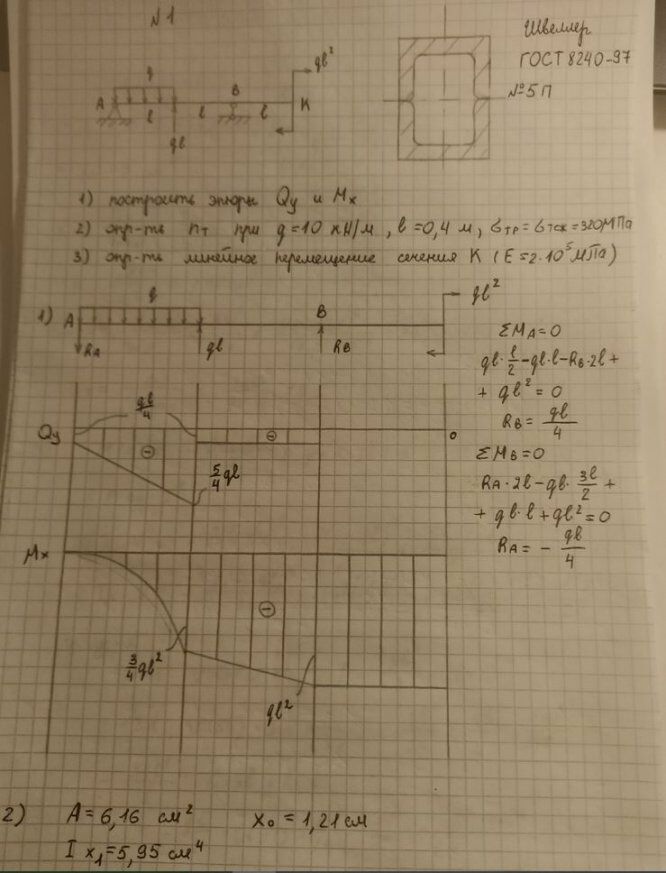 №1
Швеллер
ГОСТ 8240-97
№5П
q
ql²
A
B
K
l
l
l
ql
1) построить эпюры Qy и Mx
2) опр-ть nт при q=10 кН/м, l=0,4 м, σтр=σтсж=320МПа
3) опр-ть линейное перемещение сечения K (E=2·10⁵МПа)
1)
q
ql²
A
B
RA
ql
RB
ΣMA=0
ql·l/2-ql·l-RB·2l+
+ql²=0
RB=ql/4
ΣMB=0
RA·2l-ql·3l/2+
+ql·l+ql²=0
RA=-ql/4
ql/4
Qy
⊖
⊖
0
5/4ql
Mx
⊖
3/4ql²
ql²
2) A=6,16 см² x₀=1,21см
I x₁=5,95 см⁴